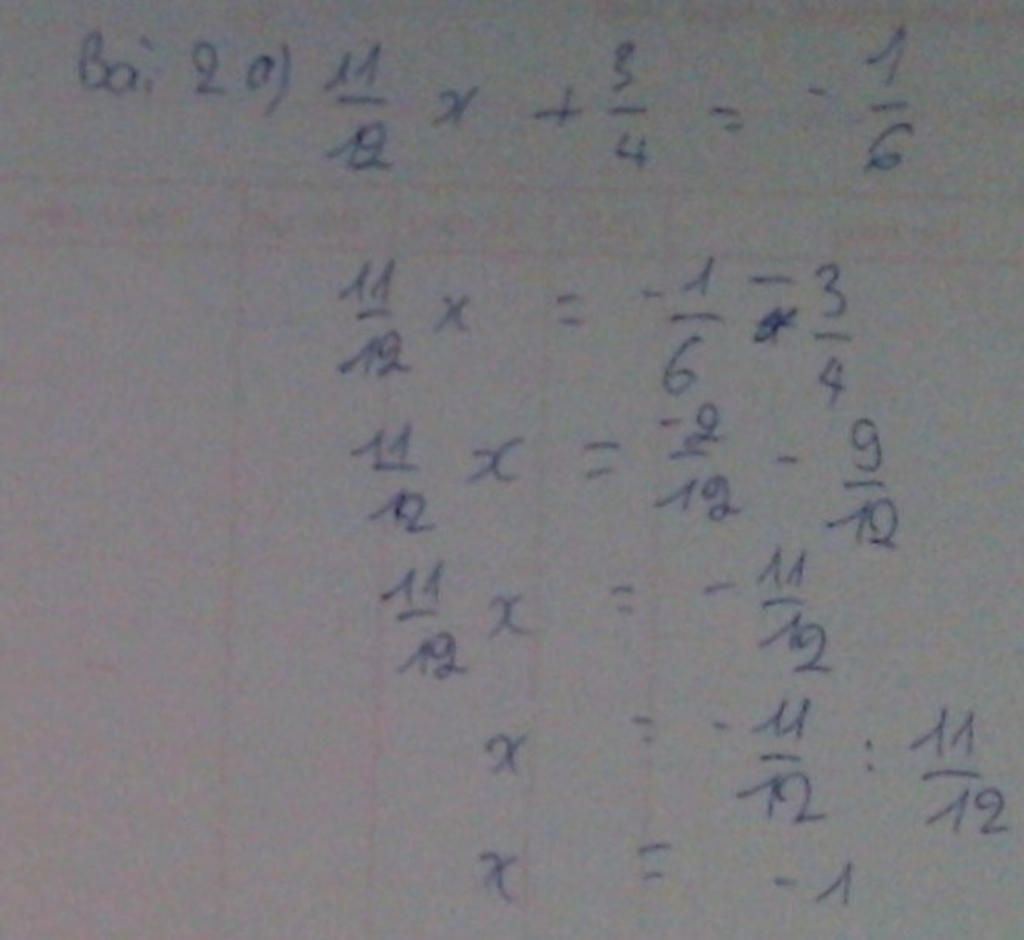 Bài 2 a) 11/12 x + 3/4 = - 1/6
11/12 x = - 1/6 - 3/4
11/12 x = -2/12 - 9/12
11/12 x = - 11/12
x = - 11/12 : 11/12
x = -1